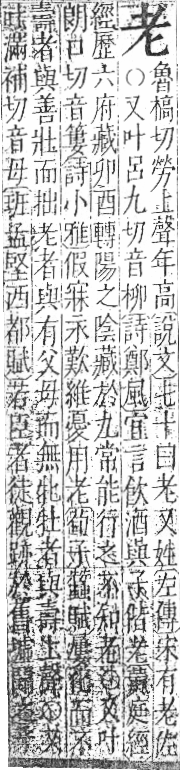 老
魯槁切勞上聲年高說文七十曰老又姓左傳宋有老佐
○又叶呂九切音柳詩鄭風宜言飲酒與子偕老黃庭經
經歷六府藏卯酉轉陽之陰藏於九常能行之不知老○又叶
朗口切音簍詩小雅假寐永歎維憂用老荀子蠶賦屢化而不
壽者與善壯而拙老者與有父母而無牝牡者與壽上聲○又
叶滿補切音母班孟堅西都賦若臣者徒觀跡於舊墟聞之